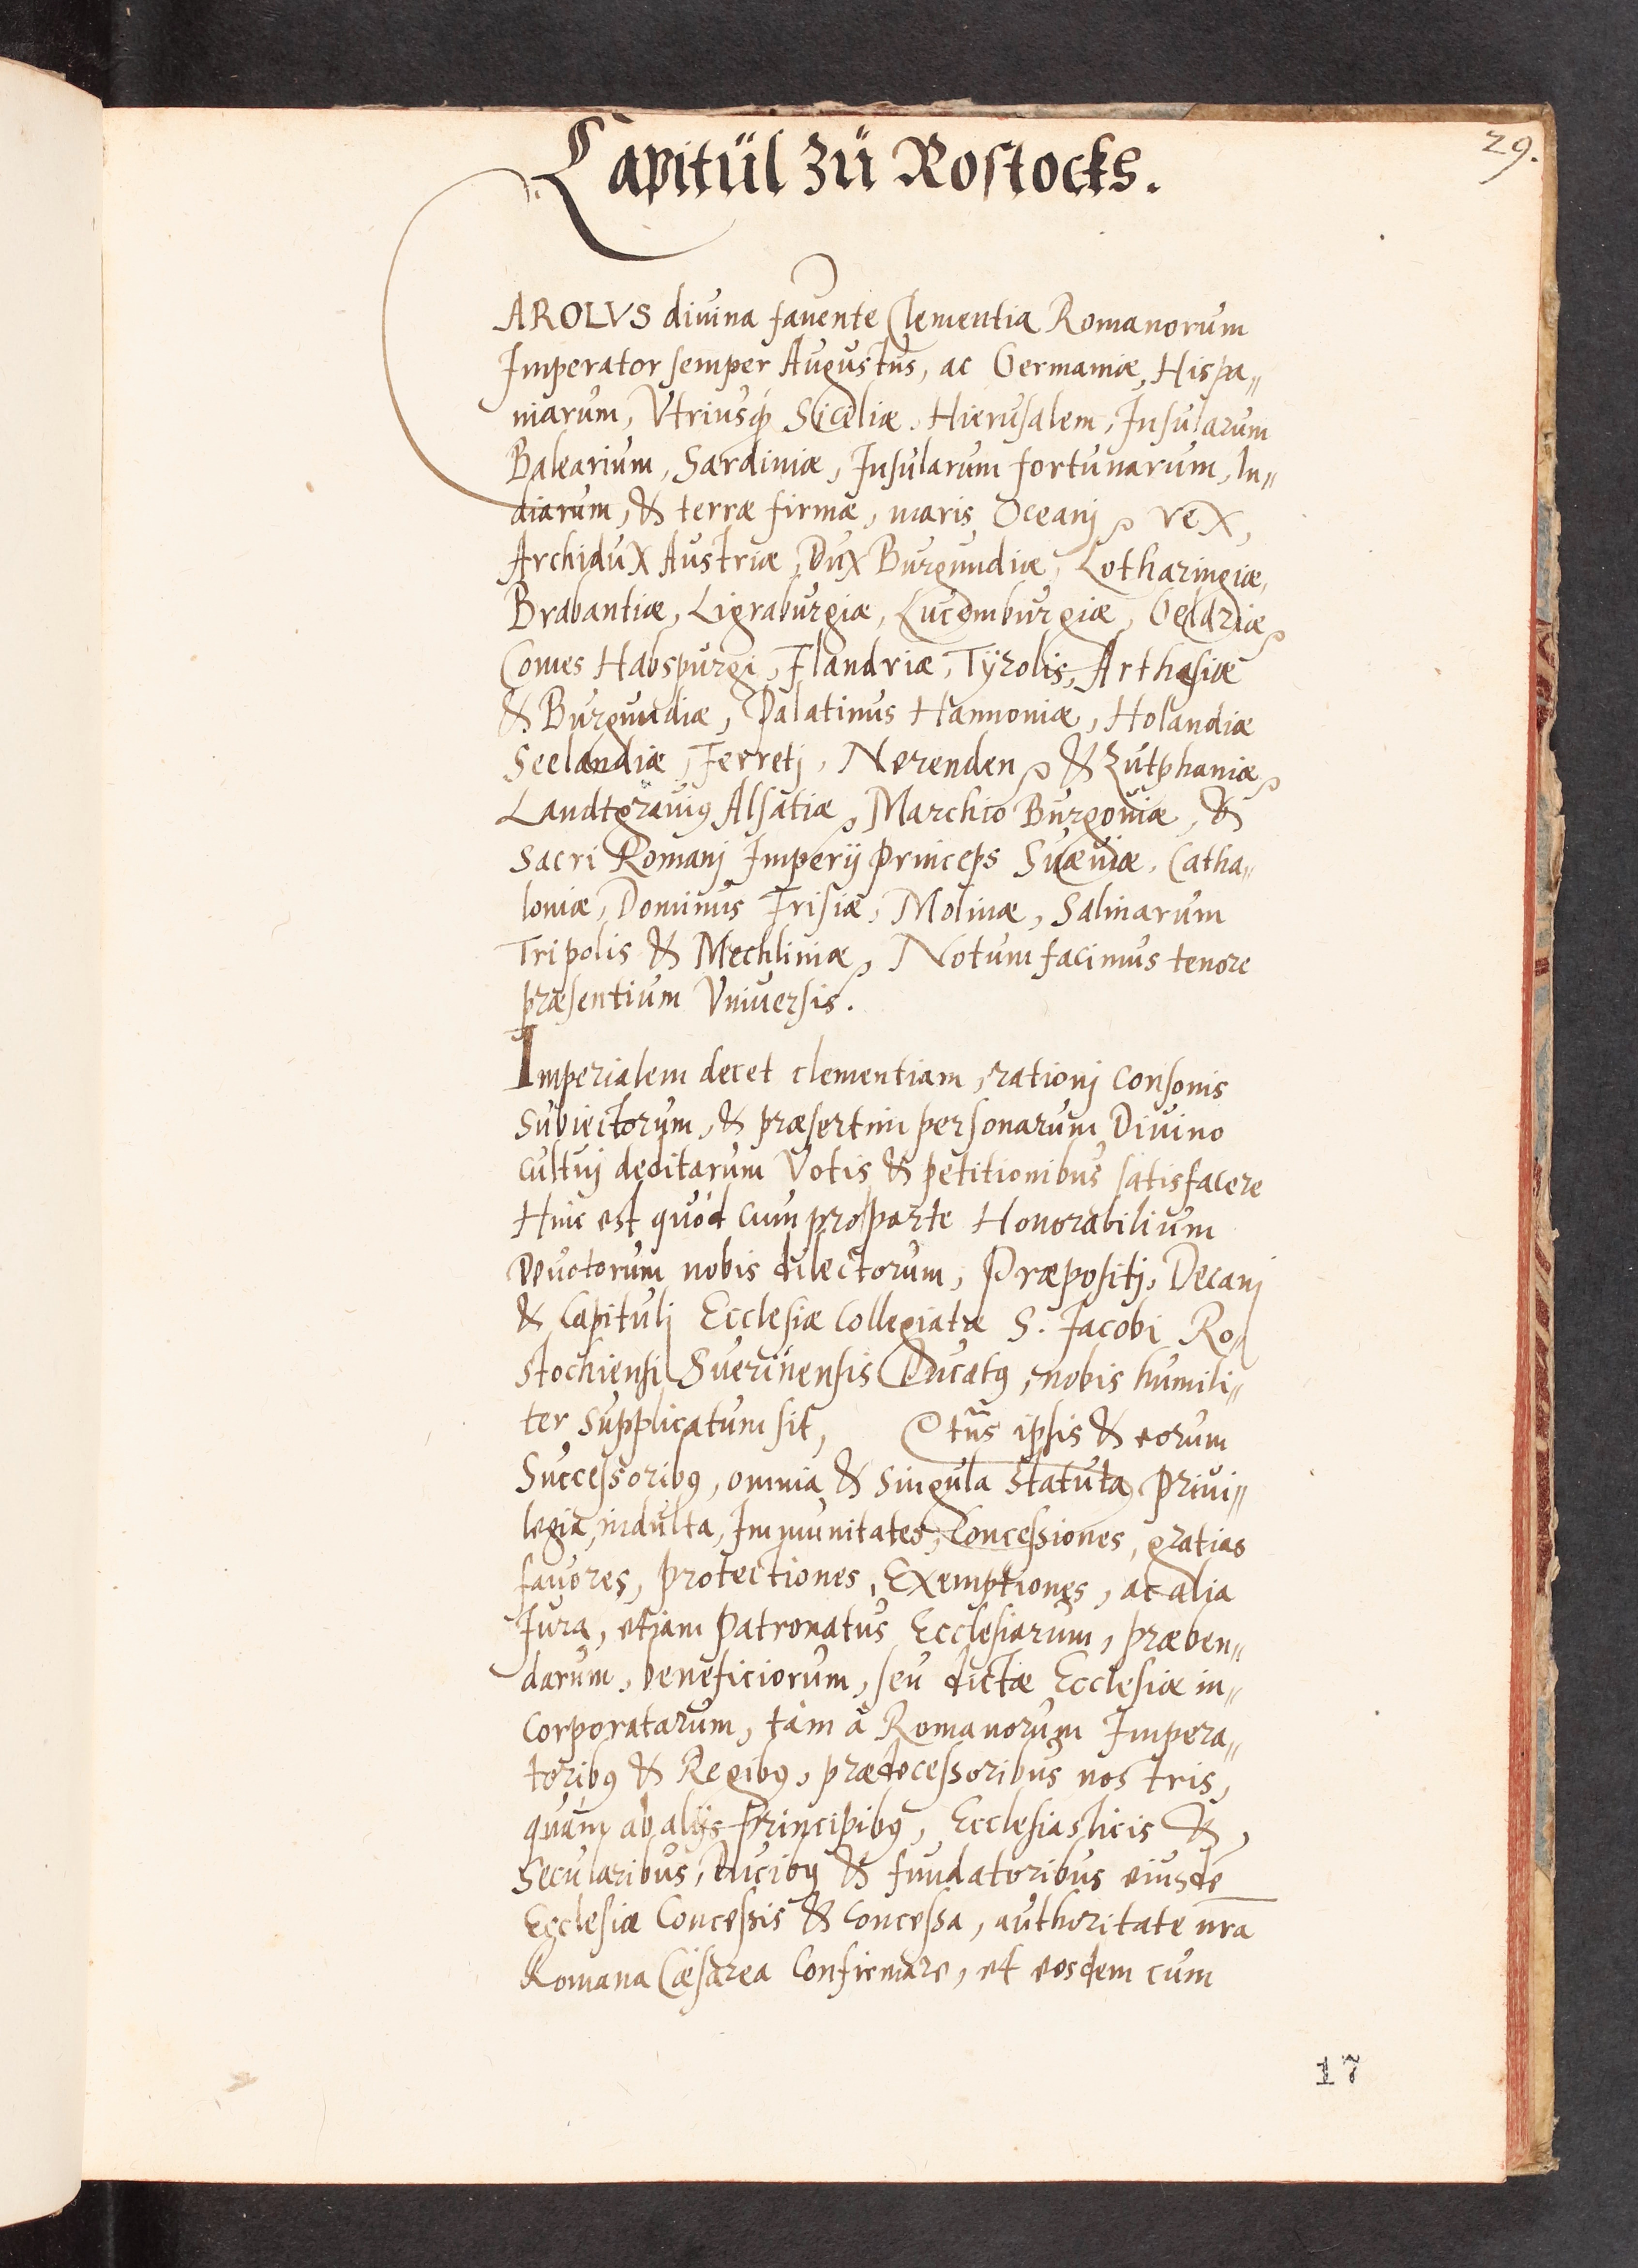 Capitül zü Rostocks.
29.
AROLVS diuina fauente Clementia Romanorum
Imperator semper Augustus, ac Germaniæ, Hispa„
niarum, Vtriusq́ Siceliæ, Hierusalem, Insularum
Balearium, Sardiniæ, Insularum fortunarum, In„
diarum, & terræ firmæ, maris Oceanj, rex,
Archidux Austriæ, Dux Burgundiæ, Lotharingiæ,
Brabantiæ, Ligraburgiæ, Lucemburgiæ, Geldriæ,
Comes Habspurgi, Flandriæ, Tÿrolis, Arthesiæ
& Burgundiæ, Palatinus Hannoniæ, Holandiæ
Seelandiæ, Ferretj, Nerenden, & Zutphaniæ,
Landtgrauiꝰ Alsatiæ, Marchio Burgouiæ, &
Sacri Romanj Imperij princeps Suæuiæ, Catha„
loniæ, Dominus Frisiæ, Molinæ, Salinarum
Tripolis & Mechliniæ, Notum facimus tenore
præsentium Vniuersis.
Imperialem decet clementiam, rationj Consonis
Subiectorum, & præsertim personarum Diuino
cultuj deditarum Votis & petitionibus satisfacere
Hinc est quòd cum pro parte Honorabilium
Deuotorum nobis dilectorum, Præpositj, Decanj
& Capitulj Ecclesiæ Collegiatæ S. Jacobi Ro„
stochiensi Suerinensis Ducatꝰ, nobis humili„
ter supplicatum sit, Qtñs ipsis & eorum
Successoribꝰ, omnia & singula statuta, priui„
legia, indulta, Immunitates, Concessiones, gratias
fauores, protectiones, Exemptiones, ac alia
Jura, etjam Patronatus Ecclesiarum, præben„
darum, beneficiorum, seu dictæ Ecclesiæ in„
corporatarum, tàm à Romanorum Impera„
toribꝰ & Regibꝰ, prædecessoribus nostris,
quàm ab alijs principibꝰ, Ecclesiasticis &,
Secularibus, Ducibꝰ & fundatoribus eiusdē
Ecclesiæ Concessis & Concessa, authoritate nr̄a
Romana Cæsarea Confirmare, et eosdem cum
17